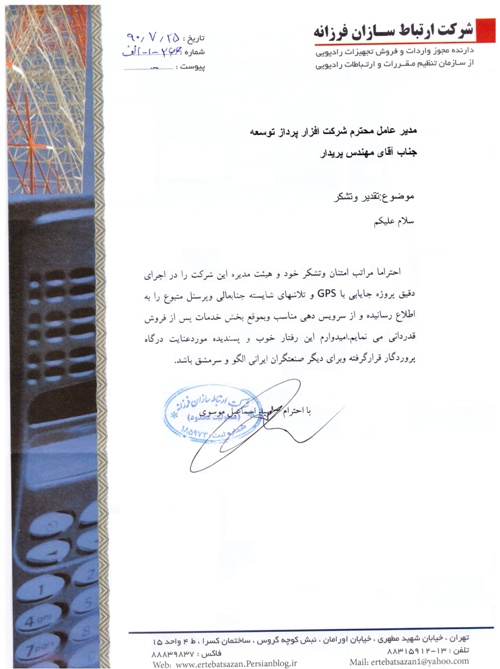 شرکت ارتباط سازان فرزانه
دارنده مجوز واردات و فروش تجهیزات رادیویی
از سازمان تنظیم مقررات و ارتباطات رادیویی
تاریخ : ۹۰,۷,۲۵
شماره
پیوست :
مدیر عامل محترم شرکت افزار پرداز توسعه
جناب آقای مهندس پریدار
موضوع:تقدیر وتشکر
سلام علیکم
احتراما مراتب امتنان وتشکر خود و هیئت مدیره این شرکت را در اجرای
دقیق پروژه جایابی با GPS و تلاشهای شایسته جنابعالی وپرسنل متبوع را به
اطلاع رسانیده و از سرویس دهی مناسب وبموقع بخش خدمات پس از فروش
قدردانی می نمایم.امیدوارم این رفتار خوب و پسندیده موردعنایت درگاه
پروردگار قرارگرفته وبرای دیگر صنعتگران ایرانی الگو و سرمشق باشد.
با احترام سید اسماعیل موسوی
شرکت ارتباط سازان فرزانه
تهران ، خیابان شهید مطهری ، خیابان اورامان ، نبش کوچه گروس ، ساختمان کسرا ، ط ۴ واحد ۱۵
تلفن : ۱۳-۸۸۳۱۵۹۱۲
فاکس : ۸۸۸۳۹۸۳۷
Mail: ertebatsazan1@yahoo.com
Web: www.ertebatsazan.Persianblog.ir